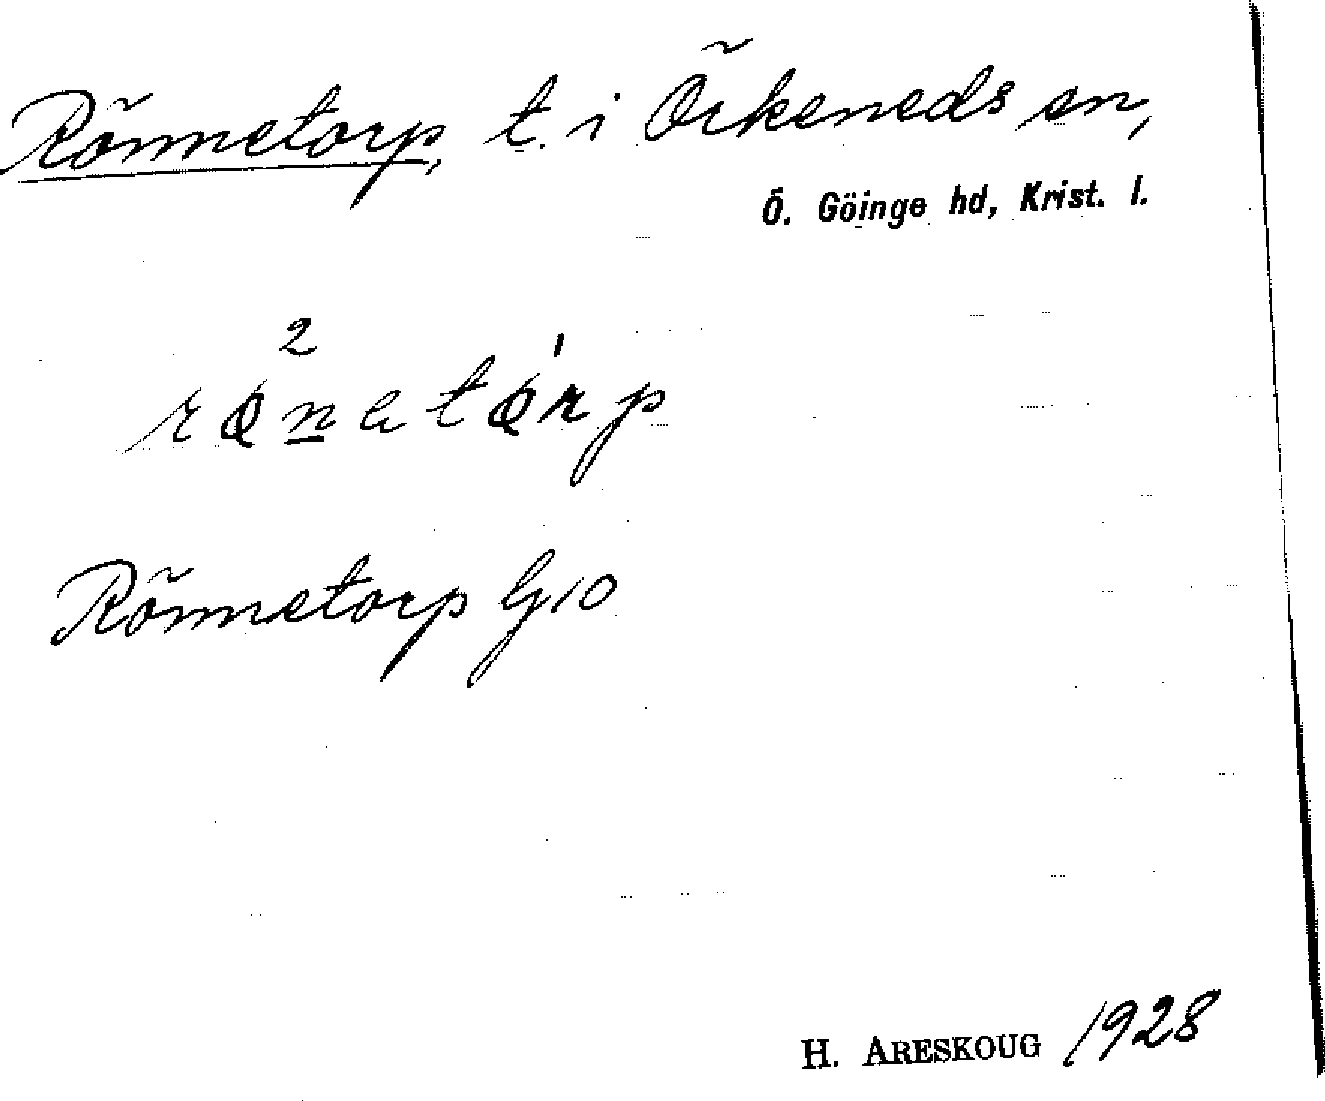 Rönnetorp, t. i Örkeneds sn,
Ö. Göinge hd, Krist. l.
2
rønatørp
Rönnetorp G10
H. ARESKOUG 1928